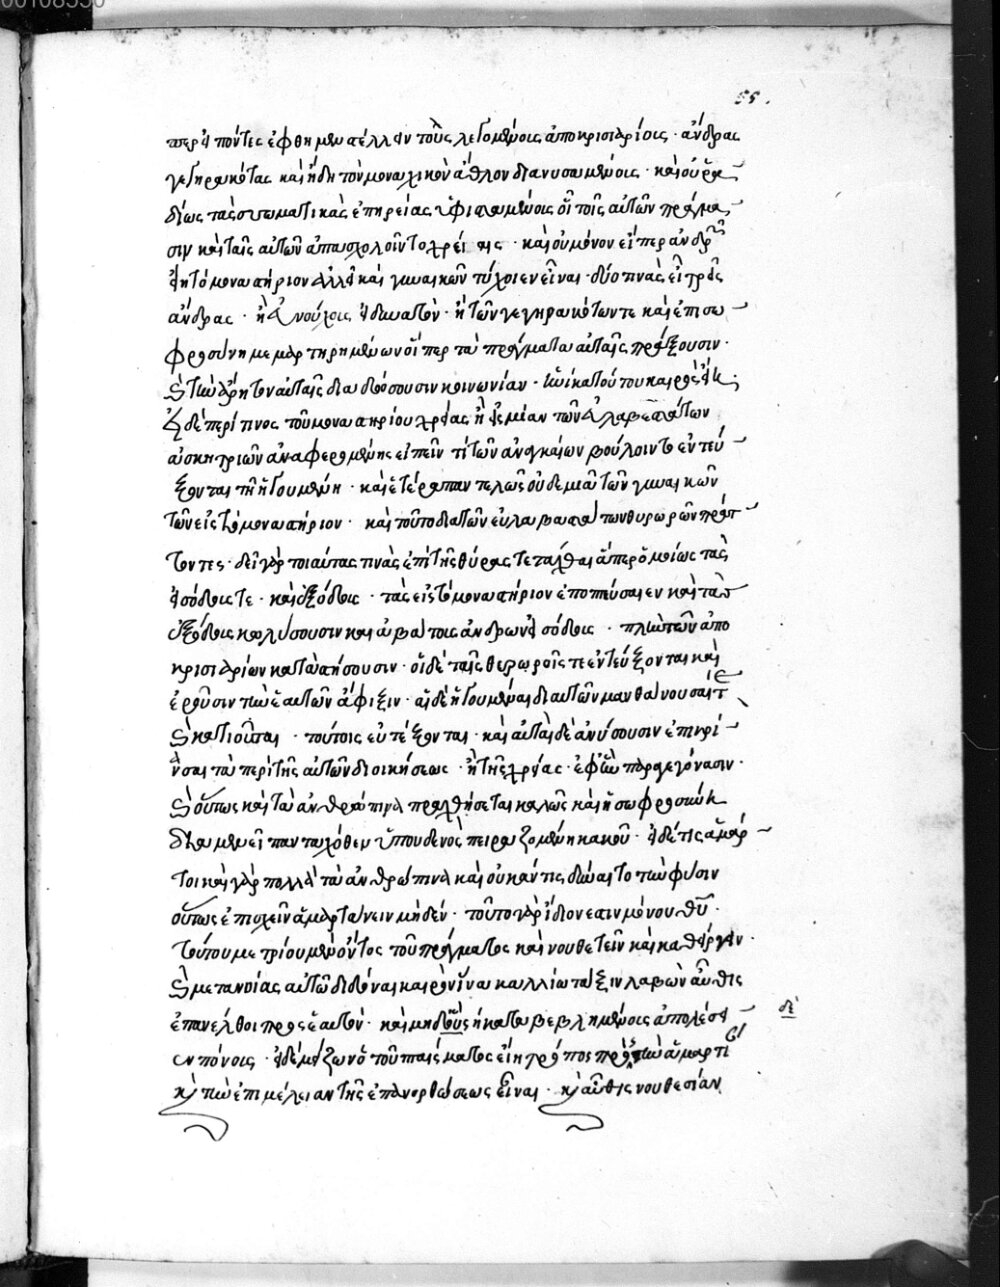 55.
πρέποντες ἔφθημεν στέλλειν τοὺς λεγομένους ἀποκρισιαρίους · ἄνδρας
γεγηρακότας καὶ ἤδη τὸν μοναχικὸν ἆθλον διανυσαμένους · καὶ οὐ ῥα
δίως ταῖς σωματικαῖς ἐπηρείαις ὑφισταμένους οἳ τοῖς αὐτῶν πράγμα
σιν καὶ ταῖς αὐτῶν ἀπασχολοῖντο χρείαις · καὶ οὐ μόνον εἴπερ ἀνδρῶν
εἴη τὸ μοναστήριον ἀλλὰ καὶ γυναικῶν τύχοιεν εἶναι · δύο τινὰς εἲ τρεῖς
ἄνδρας · ἢ εὐνούχους εἰ δυνατὸν · ἢ τῶν γεγηρακότων τε καὶ ἐπὶ σω
φροσύνῃ μεμαρτηρημένων οἵπερ τὰ πράγματα αὐταῖς πράξουσιν ·
καὶ τὴν ἄρητον αὐταῖς διαδώσουσιν κοινωνίαν · ἡνίκα τούτου καιρὸς εἴη ·
εἰ δὲ περί τινος τοῦ μοναστηρίου χρείας ἢ εἰς μίαν τῶν εὐλαβεστάτων
ἀσκητριῶν ἀναφερομένης εἰπεῖν τί τῶν ἀναγκαίων βούλοιντο ἐντεύ
ξονται τῇ ἡγουμένῃ · καὶ ἑτέρᾳ παντελῶς οὐδεμιᾷ τῶν γυναικῶν
τῶν εἰς τὸ μοναστήριον · καὶ τοῦτο διὰ τῶν εὐλαβεστάτων θυρωρῶν πράτ
τοντες · δεῖ γὰρ τοιαύτας τινὰς ἐπὶ τῆς θύρας τετάχθαι ἅπερ ὁμοίως τὰς
εἰσόδους τε · καὶ ἐξόδους · τὰς εἰς τὸ μοναστήριον ἐποπτεύσαιεν καὶ τὰς
ἐξόδους κωλύσουσιν καὶ ἀβάτους ἀνδρῶν εἰσόδους · πλὴν τῶν ἀπο
κρισιαρίων καταστήσουσιν · οἱ δὲ ταῖς θυρωροῖς τε ἐντεύξονται καὶ
ἐροῦσιν τὴν ἑαυτῶν ἄφιξιν · αἱ δὲ ἡγουμέναι διαυτῶν μανθάνουσαί τε
καὶ κατιοῦσαι · τούτοις εὐτέξονται · καὶ αὐταὶ δὲ ἀνύσουσιν ἐπικρί
νασαι τὰ περὶ τῆς αὐτῶν διοικήσεως · ἢ τῆς χρείας · ἐφ' ὧν παραγεγόνασιν ·
καὶ οὕτως καὶ τὰ ἀνθρώπινα πραχθήσεται καλῶς καὶ ἡ σωφροσύνη
διαμενεῖ πανταχόθεν ὑπ' οὐδενὸς πειραζομένη κακοῦ · εἰ δέ τις ἁμάρ
τοι καὶ γὰρ πολλὰ τὰ ἀνθρώπινα καὶ οὐκ ἄν τις δύναιτο τὴν φύσιν
οὕτως ἐπισχεῖν ἁμαρτάνειν μηδέν · τοῦτο γὰρ ἴδιον ἐστιν μόνου θῦ ·
τούτου μετρίου μὲν ὄντος τοῦ πράγματος καὶ νουθετεῖν καὶ καθείργειν ·
καὶ μετανοίας αὐτῶ διδόναι καιρὸν ἵνα καλλίω τάξιν λαβὼν αὖθις
ἐπανέλθοι πρὸς ἑαυτὸν · καὶ μηδ' οὓς ἤ καταβεβλημένους ἀπολέσει
δὲ
ἐν πόνοις · εἰ δὲ μείζων ὁ τοῦ πταίσματος εἴη τρόπος πρὸς τὴν ἁμαρτί
καὶ τὴν ἐπιμέλειαν τῆς ἐπανορθώσεως εἶναι · καὶ αὖθις νουθεσίαν